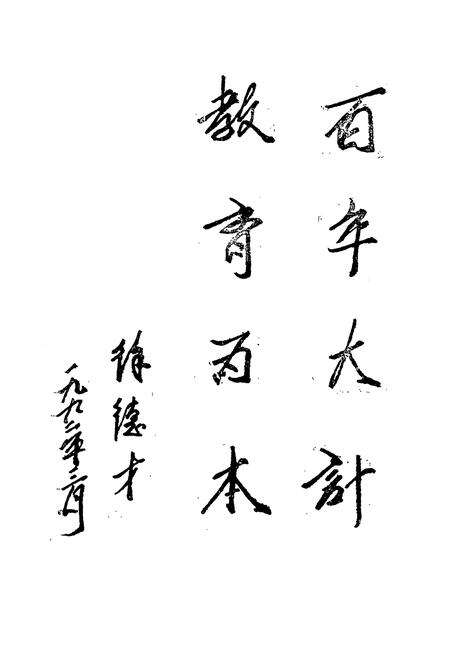 百年大計
教育为本
徐德才
一九九二年三月